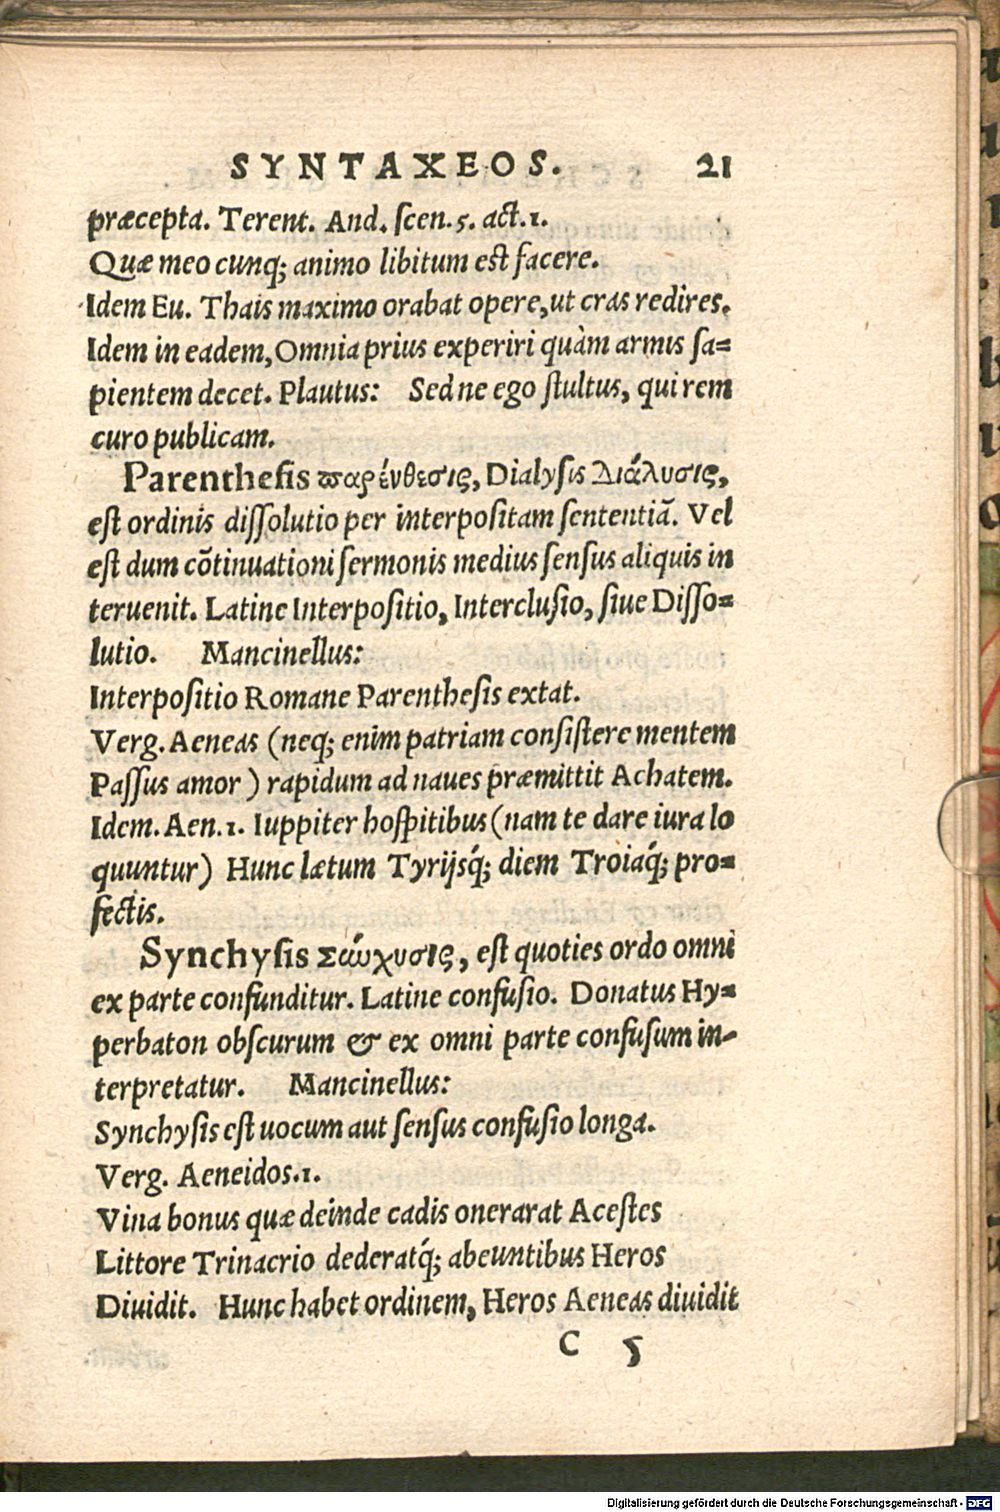 SYNTAXEOS. 21
præcepta. Terent. And. ſcen. 5. act. 1.
Quæ meo cunq; animo libitum eſt facere.
Idem Eu. Thais maximo orabat opere, ut cras redires.
Idem in eadem, Omnia prius experiri quàm armis ſa=
pientem decet. Plautus: Sed ne ego ſtultus, qui rem
curo publicam.
Parentheſis ϖαρένθεσις, Dialyſis Διάλυσις,
eſt ordinis diſſolutio per interpoſitam ſententiã. Vel
eſt dum cõtinuationi ſermonis medius ſenſus aliquis in
teruenit. Latine Interpoſitio, Intercluſio, ſiue Diſſo=
lutio. Mancinellus:
Interpoſitio Romane Parentheſis extat.
Verg. Aeneas (neq; enim patriam conſiſtere mentem
Paſſus amor) rapidum ad naues præmittit Achatem.
Idem. Aen. 1. Iuppiter hoſpitibus (nam te dare iura lo
quuntur) Hunc lætum Tyrijsq́; diem Troiaq́; pro=
fectis.
Synchyſis Σύγχυσις, eſt quoties ordo omni
ex parte confunditur. Latine confuſio. Donatus Hy=
perbaton obſcurum & ex omni parte confuſum in-
terpretatur. Mancinellus:
Synchyſis eſt uocum aut ſenſus confuſio longa.
Verg. Aeneidos. 1.
Vina bonus quæ deinde cadis onerarat Aceſtes
Littore Trinacrio dederatq́; abeuntibus Heros
Diuidit. Hunc habet ordinem, Heros Aeneas diuidit
C 5
Digitalisierung gefördert durch die Deutsche Forschungsgemeinschaft - DFG